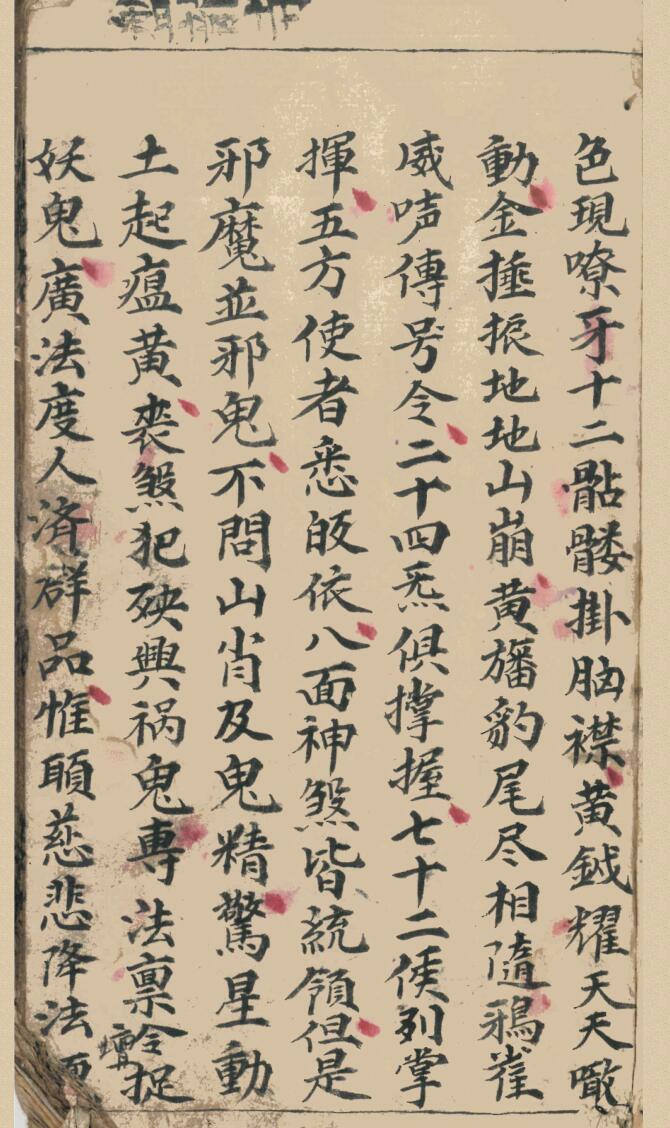 色現嘹牙十二骷髏掛胸襟黄鉞耀天天噉
動金捶振地地山崩黄旛豹尾尽相隨鴉雀
威声傳号令二十四炁俱撑握七十二候列掌
揮五方使者悉皈依八面神煞皆統領但是
邪魔並邪鬼不問山肖及鬼精驚星動
土起瘟黄喪煞犯殃興祸鬼専法稟令捉
壇
妖鬼廣法度人済群品惟願慈悲降法